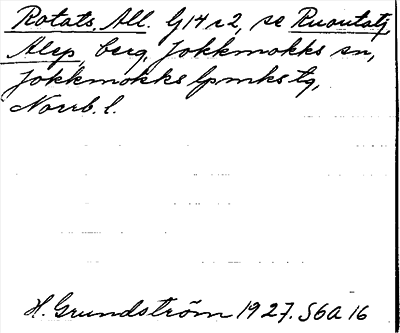 Rotats. All. lj 14 r2, se Ruoutatj,
Alep, berg, Jokkmokks sn,
Jokkmokks lpmks tg,
Norrb. l.
H. Grundström 1927. S6a 16